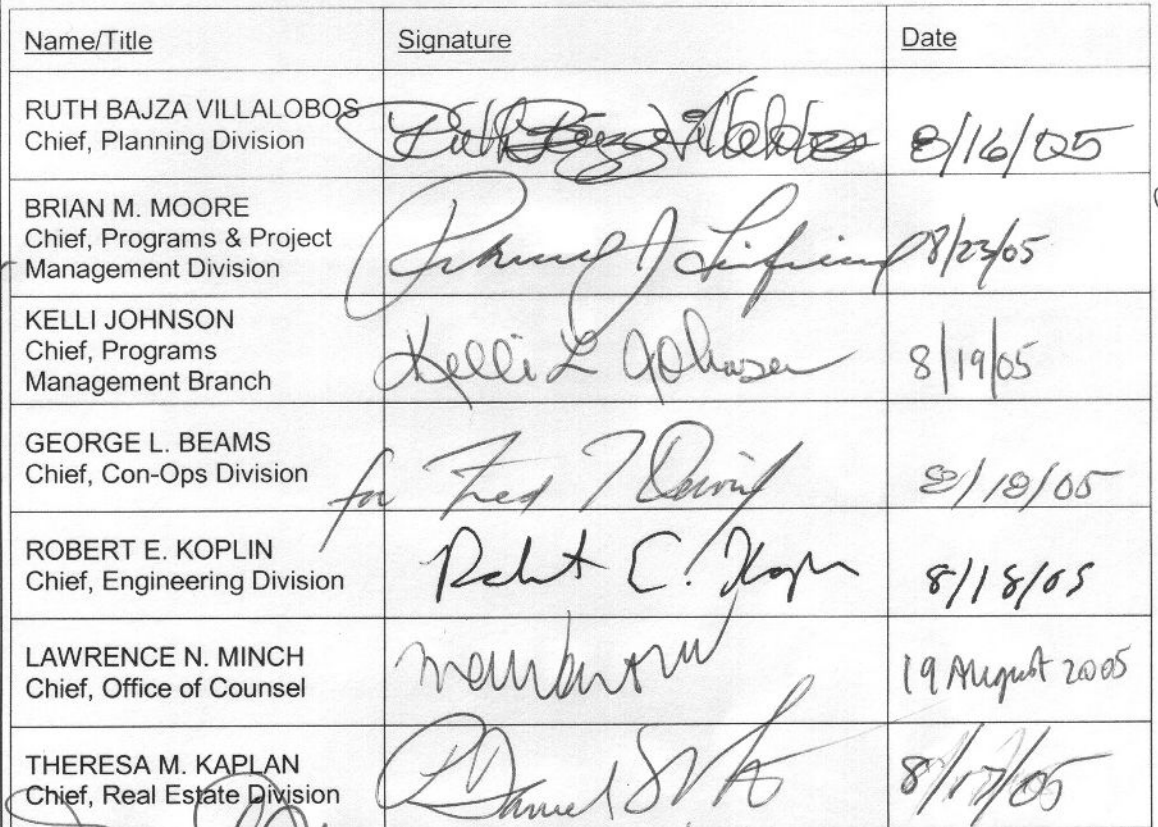 Name/Title Signature Date
RUTH BAJZA VILLALOBOS
Chief, Planning Division
Ruth Bajza Villalobos 8/16/05
BRIAN M. MOORE
Chief, Programs & Project
Management Division
8/23/05
KELLI JOHNSON
Chief, Programs
Management Branch
Kelli L Johnson 8/19/05
GEORGE L. BEAMS
Chief, Con-Ops Division
for Fred 8/18/05
ROBERT E. KOPLIN
Chief, Engineering Division
Robert E. Koplin 8/18/05
LAWRENCE N. MINCH
Chief, Office of Counsel
19 August 2005
THERESA M. KAPLAN
Chief, Real Estate Division
Daniel 8/17/05